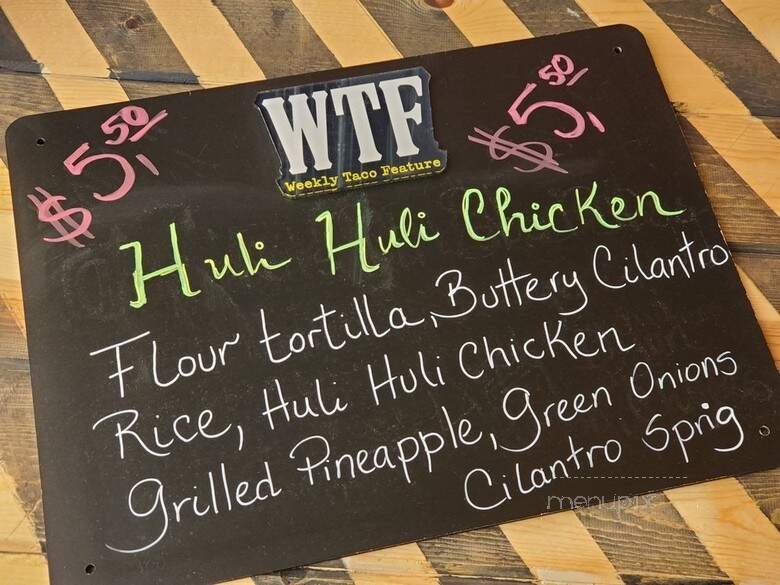 $5.50 WTF $5.50
Weekly Taco Feature
Huli Huli Chicken
Flour tortilla, Buttery Cilantro
Rice, Huli Huli Chicken
Grilled Pineapple, Green Onions
Cilantro Sprig
menupix